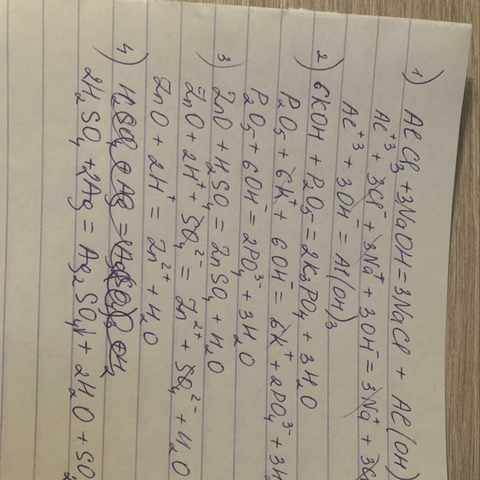 1) AlCl3 + 3NaOH = 3NaCl + Al(OH)
Al⁺³ + 3Cl⁻ + 3Na⁺ + 3OH⁻ = 3Na⁺ + 3Cl
Al⁺³ + 3OH⁻ = Al(OH)3
2) 6KOH + P2O5 = 2K3PO4 + 3H2O
P2O5 + 6K⁺ + 6OH⁻ = 6K⁺ + 2PO4³⁻ + 3H
P2O5 + 6OH⁻ = 2PO4³⁻ + 3H2O
3) ZnO + H2SO4 = ZnSO4 + H2O
ZnO + 2H⁺ + SO4²⁻ = Zn²⁺ + SO4²⁻ + H2O
ZnO + 2H⁺ = Zn²⁺ + H2O
4)
2H2SO4 + 2Ag = Ag2SO4↓ + 2H2O + SO2